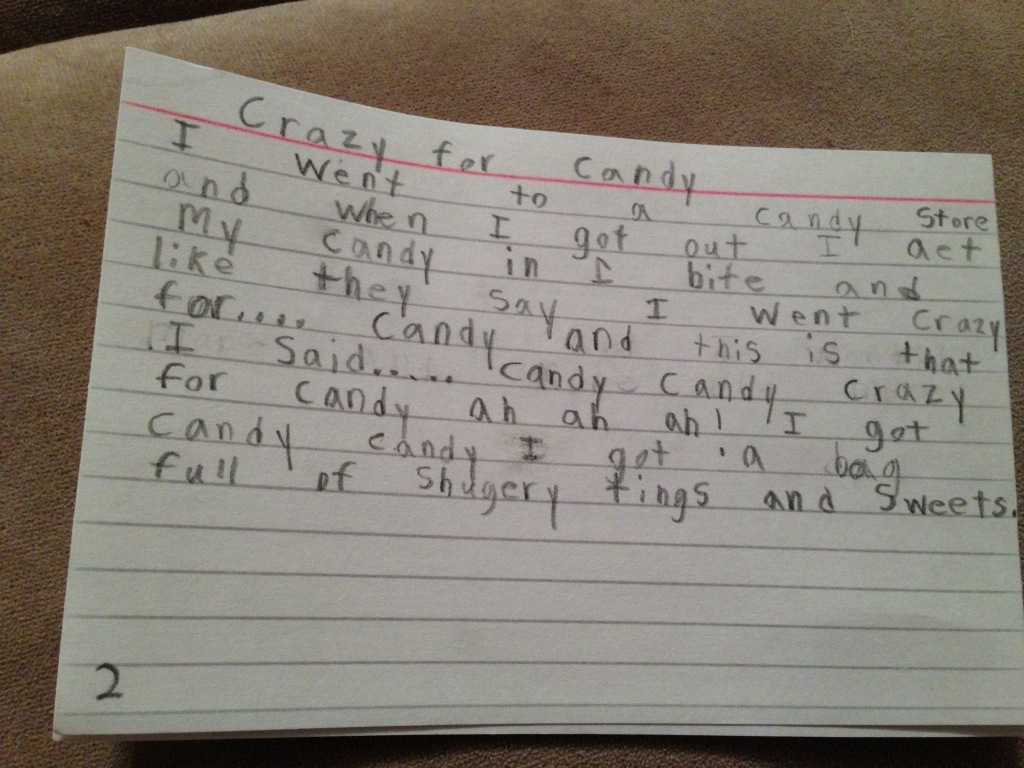 Crazy for Candy
I went to a candy store
and when I got out I act
My candy in I bite and
like they say I went crazy
for.... Candy and this is that
I said..... Candy Candy crazy
for candy ah ah ah! I got
Candy candy I got a bag
full of Shugery tings and Sweets.
2